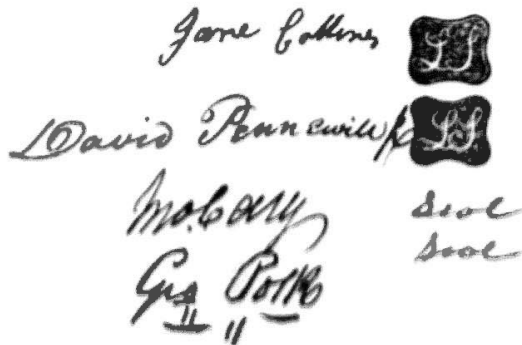 Jane Collins LS
David Pennewill LS
Seal
Seal
Geo Polk